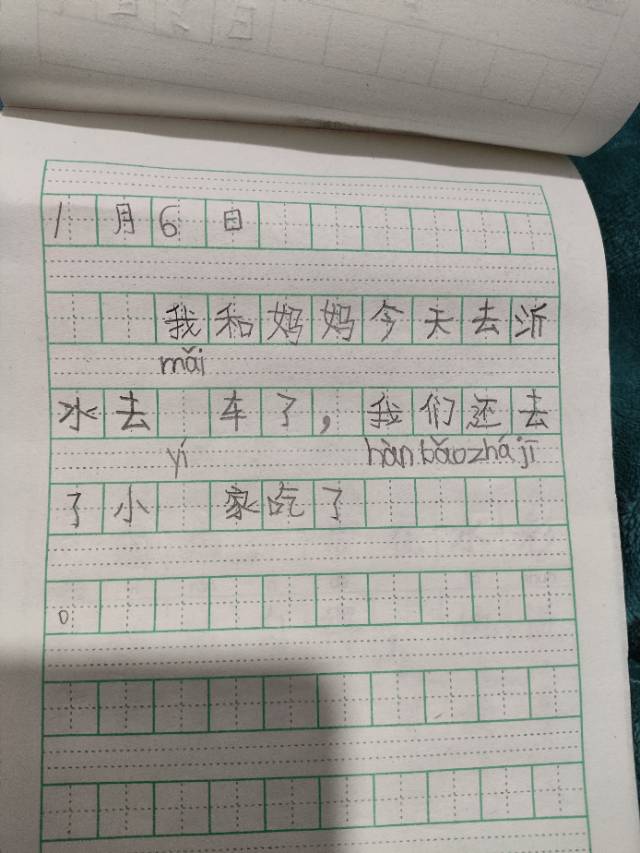 1月6日
我和妈妈今天去沂
mǎi
水去 车了，我们还去
yí hàn bǎo zhá jī
了小 家吃了
。